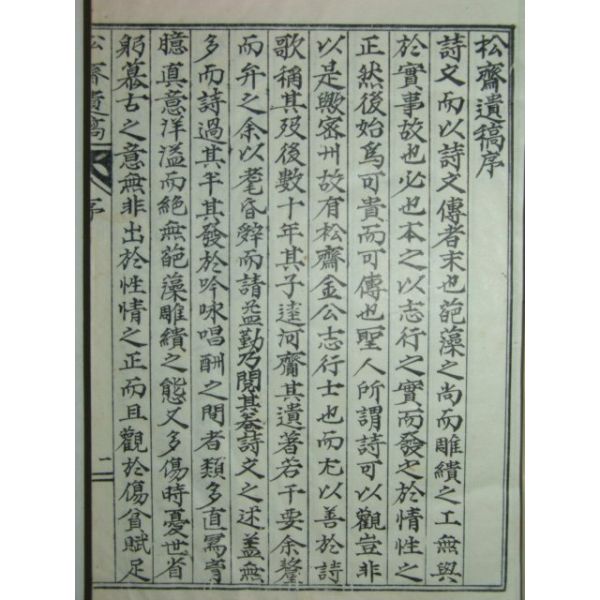 松齋遺稿序
詩文而以詩文傳者末也葩藻之尚而雕繢之工無與
於實事故也必也本之以志行之實而發之於情性之
正然後始爲可貴而可傳也聖人所謂詩可以觀豈非
以是歟密州故有松齋金公志行士也而尤以善於詩
歌稱其歿後數十年其子達河齎其遺著若干要余釐
而弁之余以耄昏辭而請益勤乃閱其卷詩文之述蓋無
多而詩過其半其發於吟咏唱酬之間者類多直寫胷
臆真意洋溢而絶無葩藻雕繢之態又多傷時憂世省
躬慕古之意無非出於性情之正而且觀於傷貧賦足
松齋遺稿 序 二